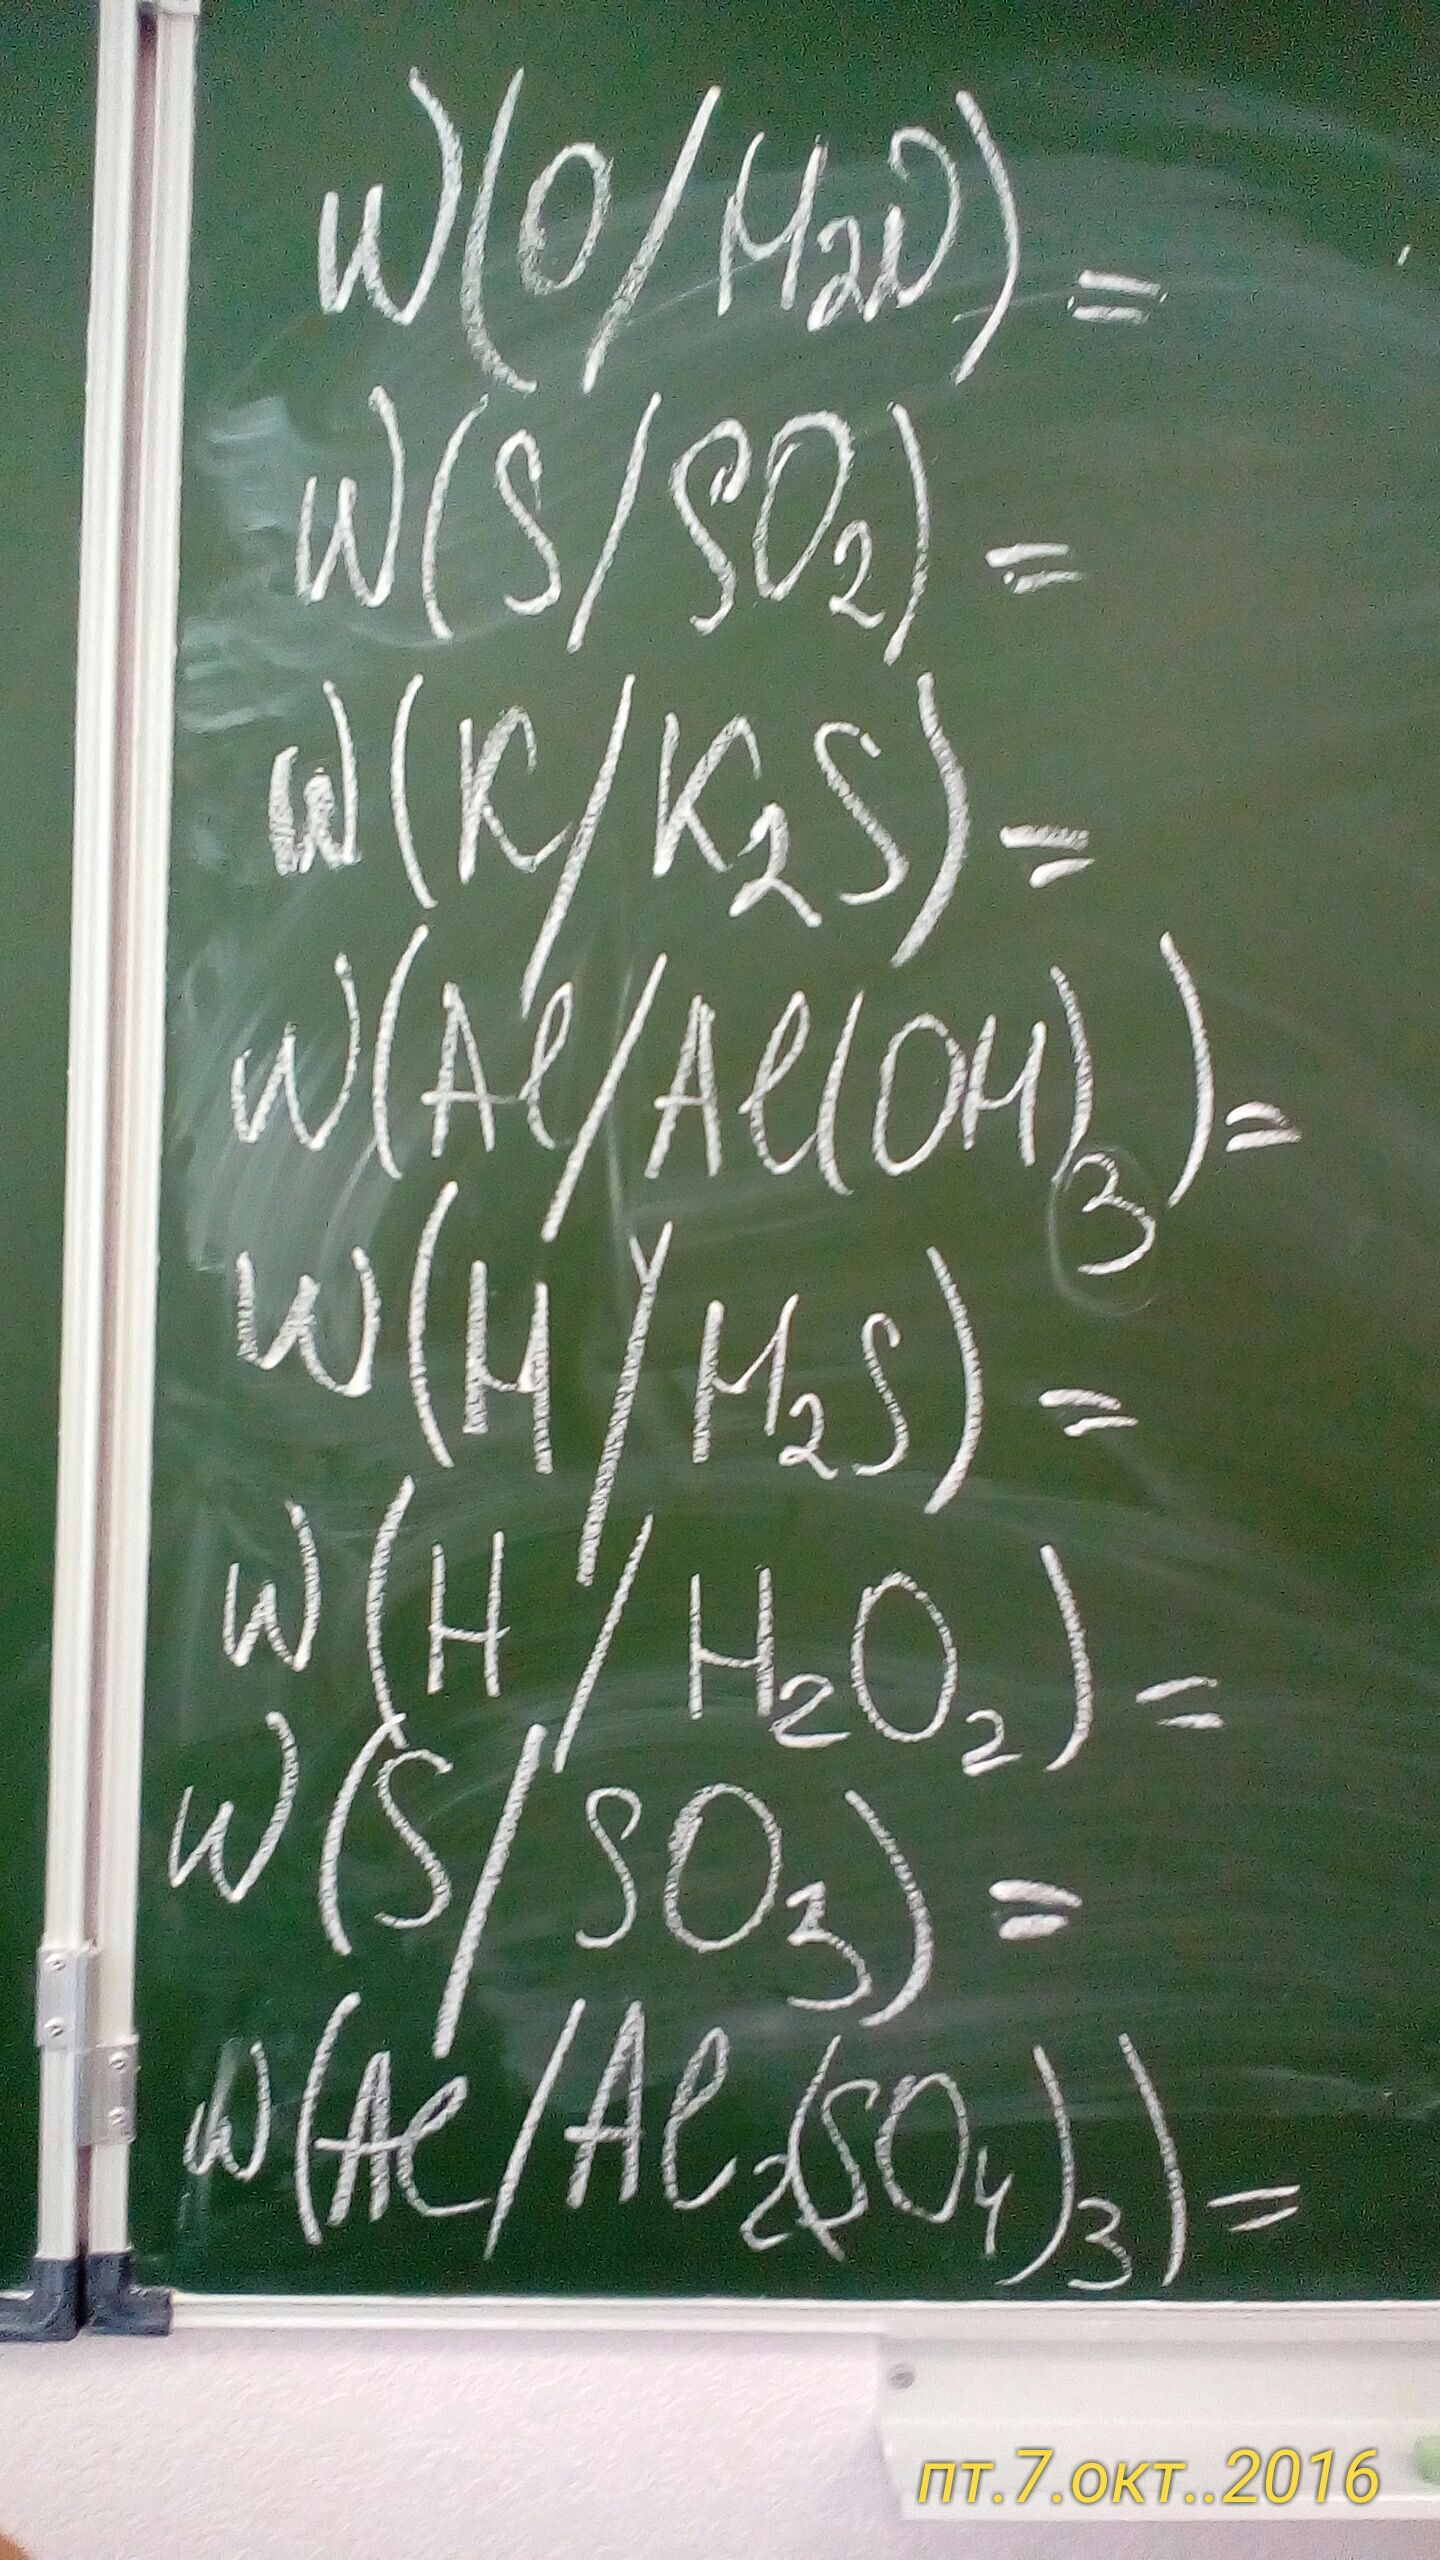 W(O/H₂O)=
W(S/SO₂)=
W(K/K₂S)=
W(Al/Al(OH)₃)=
W(H/H₂S)=
W(H/H₂O₂)=
W(S/SO₃)=
W(Al/Al₂(SO₄)₃)=
пт.7.окт..2016